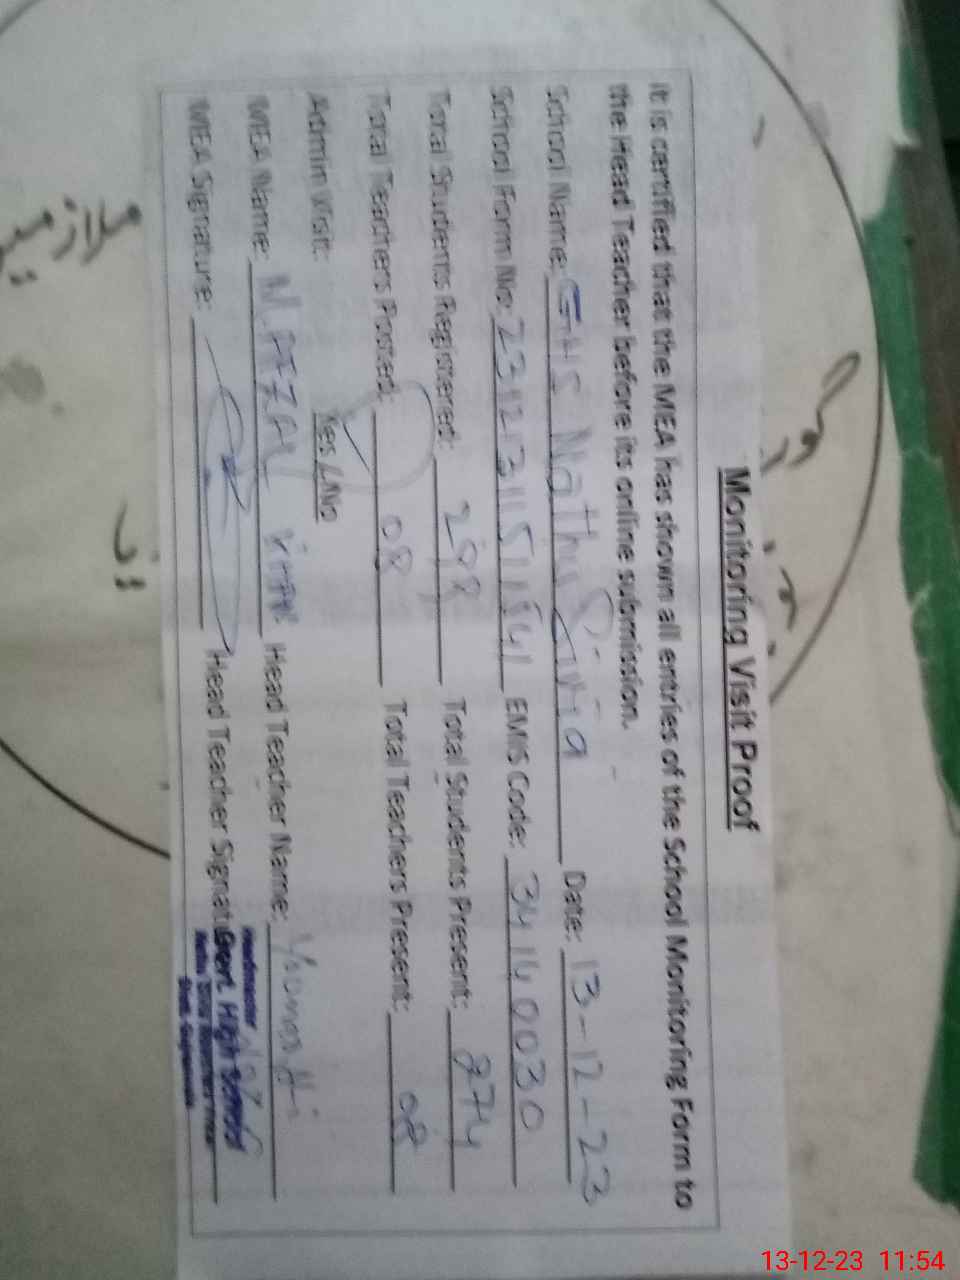 Monitoring Visit Proof
It is certified that the MEA has shown all entries of the School Monitoring Form to
the Head Teacher before its online submission.
School Name: GHS Nathu Sivia Date: 13-12-23
School Form No: EMIS Code: 34140030
Total Students Registered: 298 Total Students Present: 274
Total Teachers Posted: 08 Total Teachers Present: 08
Admin Visit: Yes / No
MEA Name: M. AFZAL Head Teacher Name:
MEA Signature: Head Teacher Signatu
Headmaster
Govt. High School
ملازمی
13-12-23 11:54